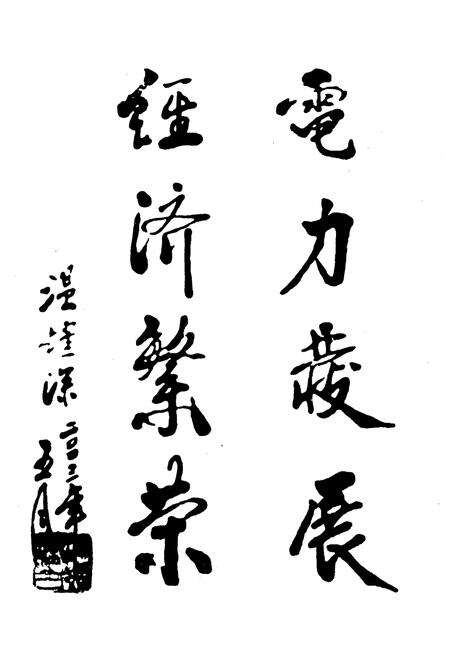 電力發展
經济繁荣
温 深
二〇〇三年
五月